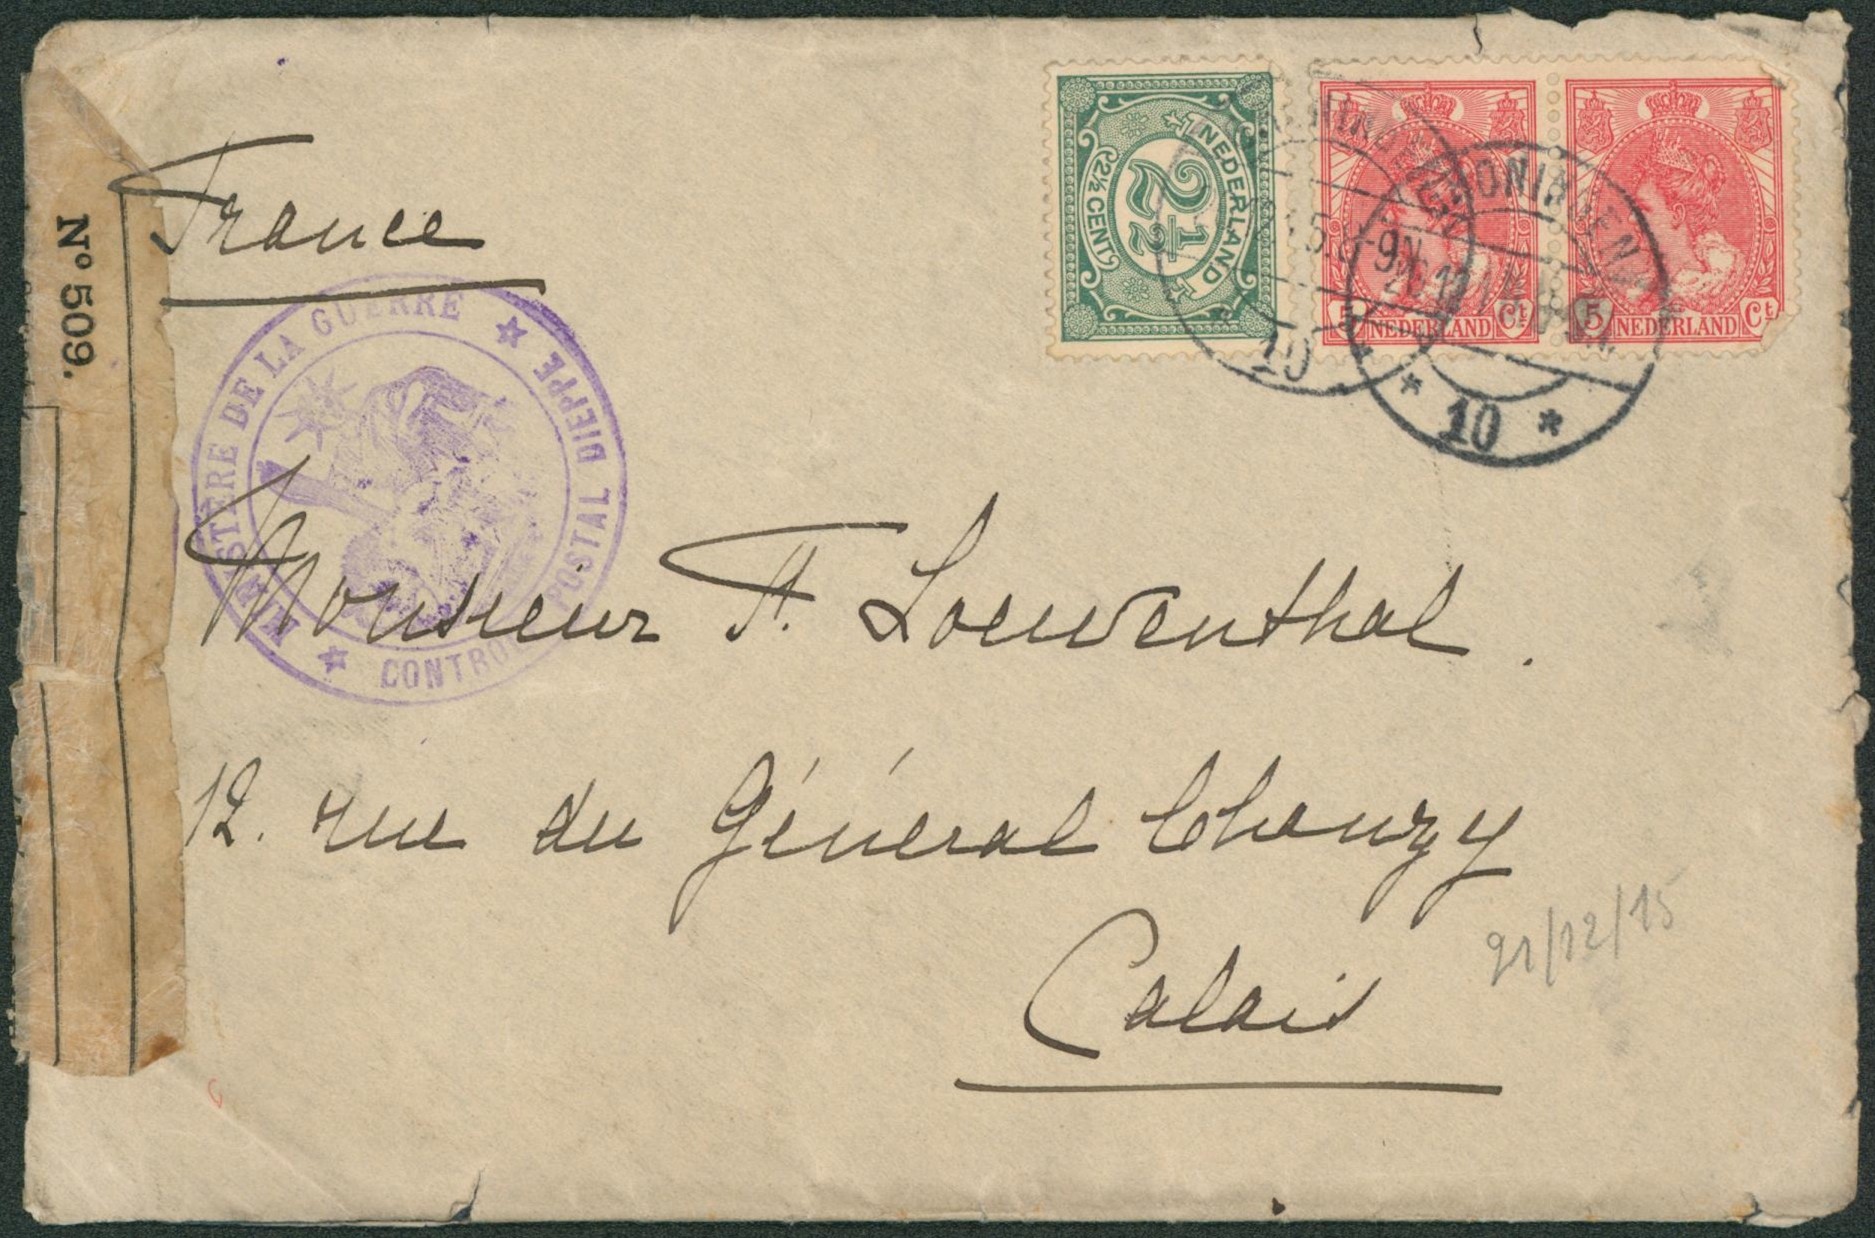 France
Nº 509.
MINISTÈRE DE LA GUERRE
CONTROLE POSTAL DIEPPE
NEDERLAND
2½
2½ CENT
5 NEDERLAND Ct
5 NEDERLAND Ct
10
10
Monsieur A. Loewenthal.
12. rue du Général Chanzy
Calais
21/12/15